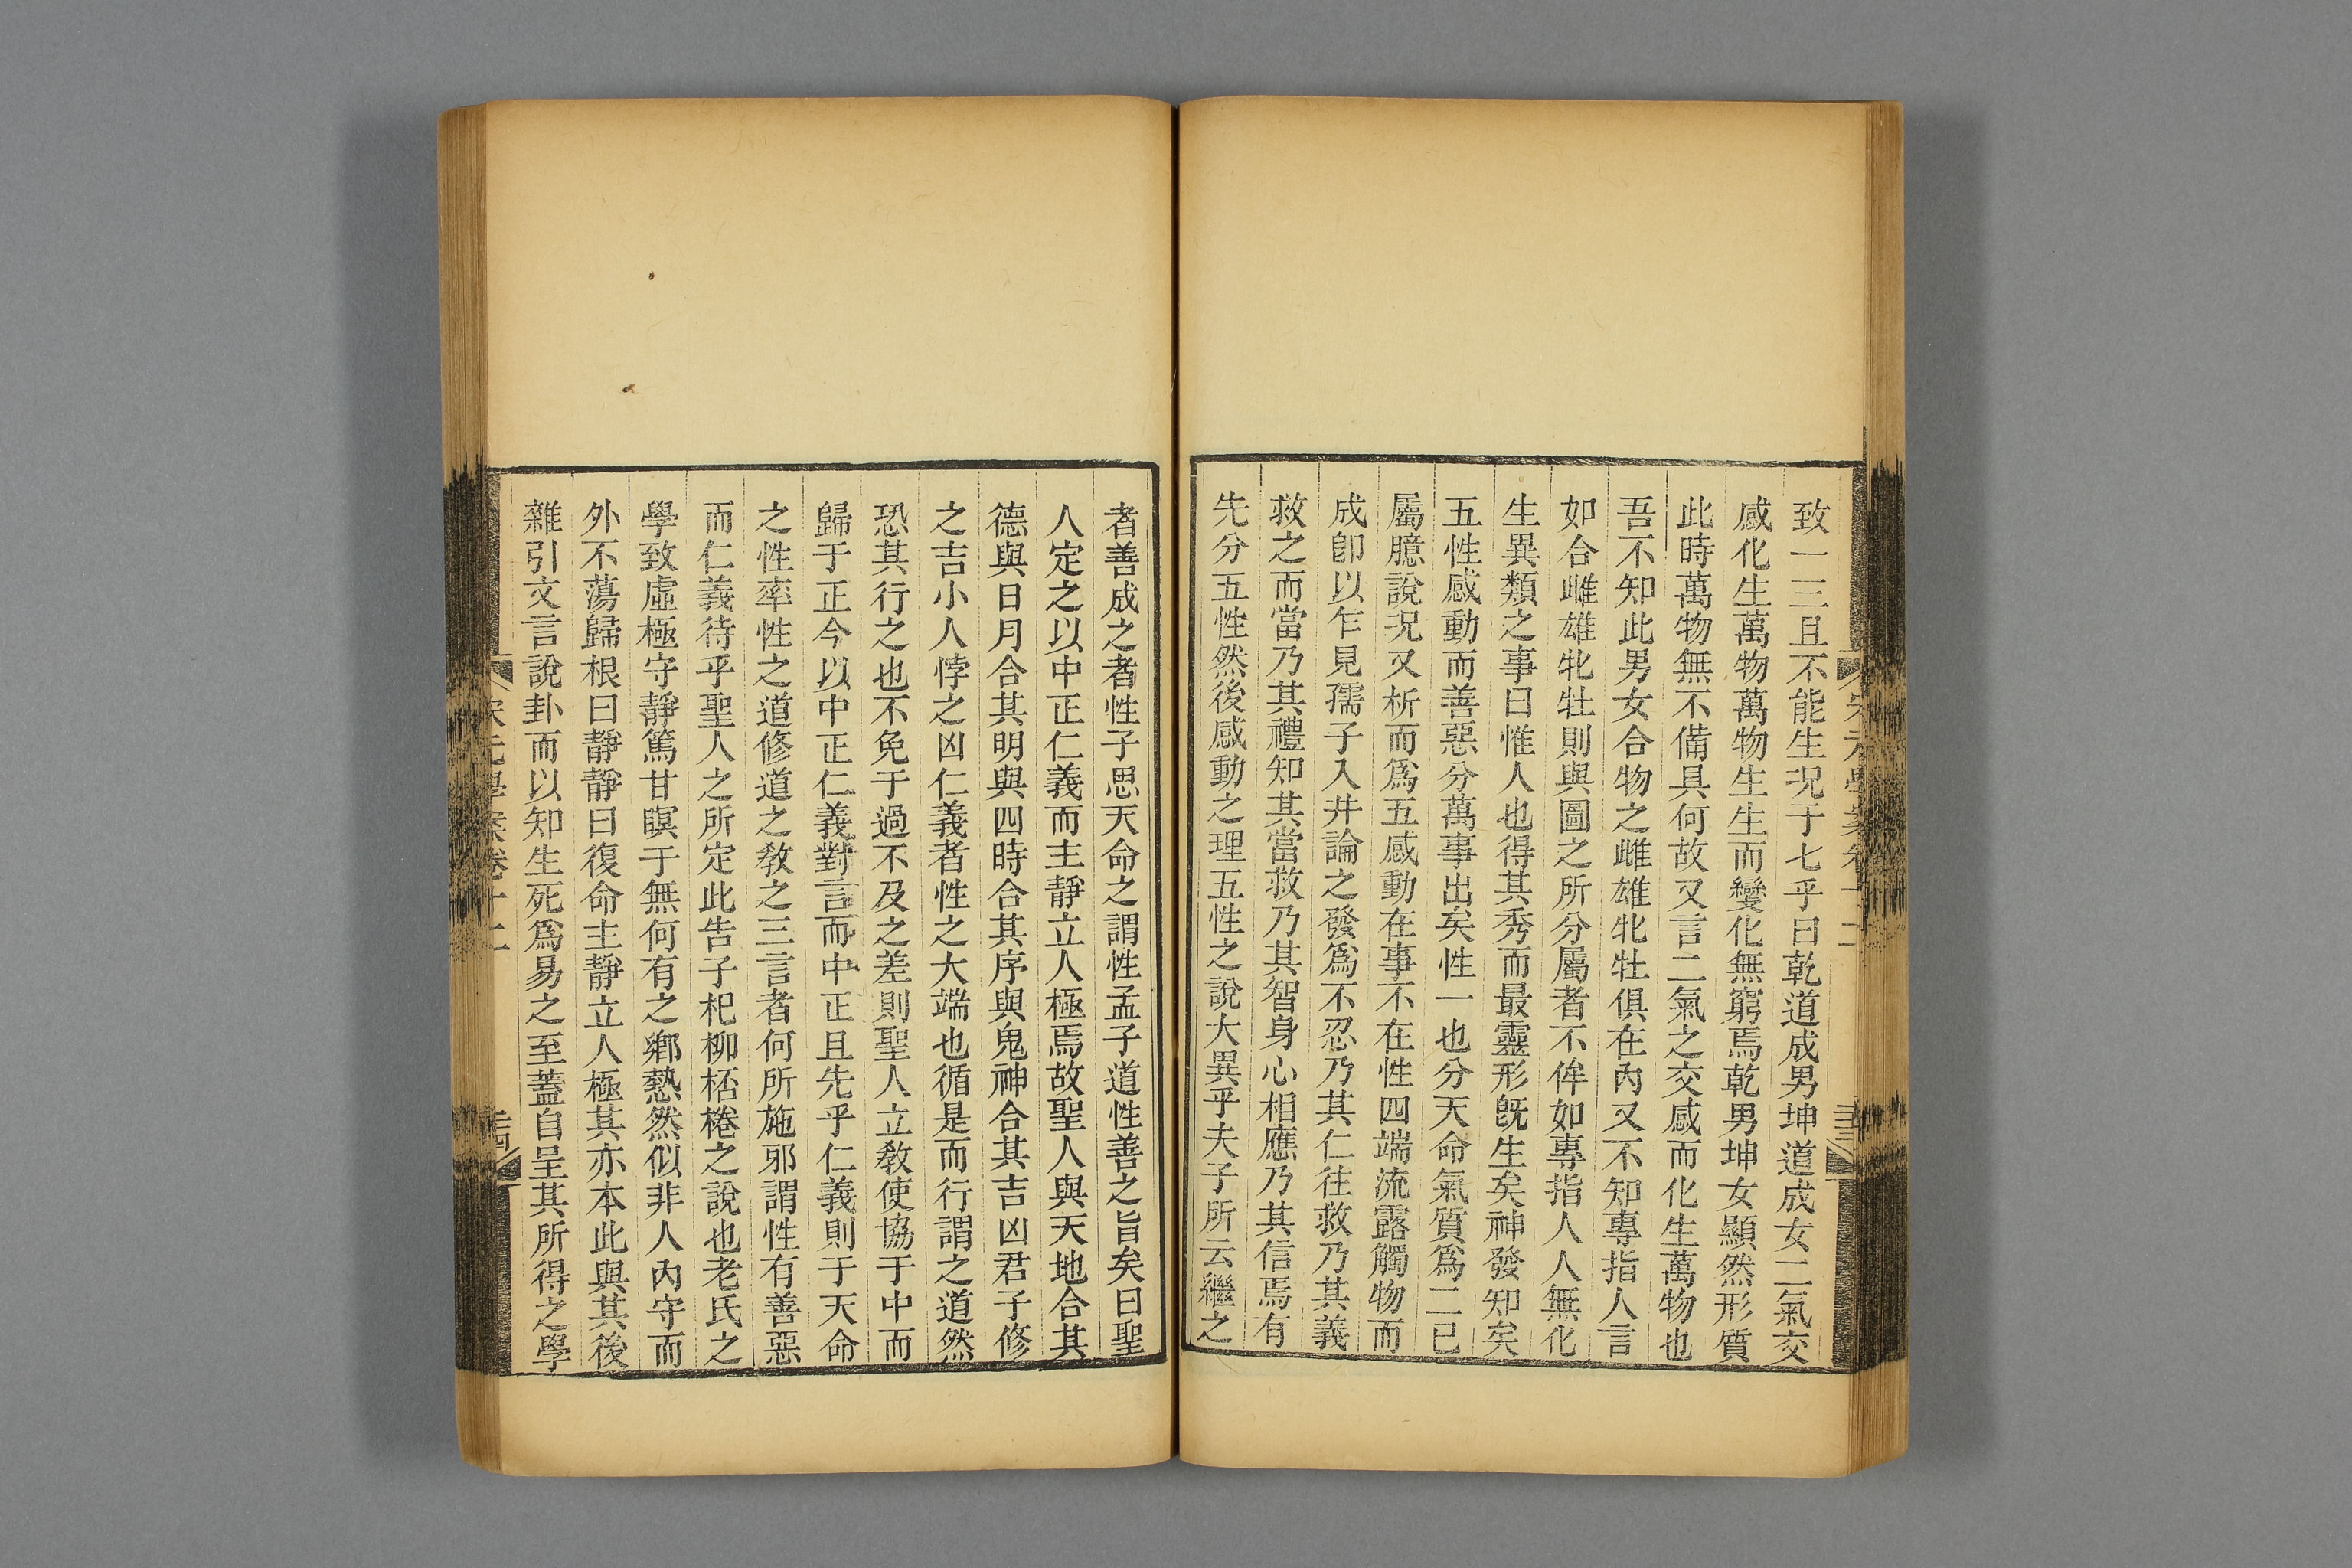 致一三且不能生況于七乎曰乾道成男坤道成女二氣交
感化生萬物萬物生生而變化無窮焉乾男坤女顯然形質
此時萬物無不備具何故又言二氣之交感而化生萬物也
吾不知此男女合物之雌雄牝牡俱在內又不知專指人言
如合雌雄牝牡則與圖之所分屬者不侔如專指人人無化
生異類之事曰惟人也得其秀而最靈形旣生矣神發知矣
五性感動而善惡分萬事出矣性一也分天命氣質爲二已
屬臆說況又析而爲五感動在事不在性四端流露觸物而
成卽以乍見孺子入井論之發爲不忍乃其仁往救乃其義
救之而當乃其禮知其當救乃其智身心相應乃其信焉有
先分五性然後感動之理五性之說大異乎夫子所云繼之
者善成之者性子思天命之謂性孟子道性善之旨矣曰聖
人定之以中正仁義而主靜立人極焉故聖人與天地合其
德與日月合其明與四時合其序與鬼神合其吉凶君子修
之吉小人悖之凶仁義者性之大端也循是而行謂之道然
恐其行之也不免于過不及之差則聖人立敎使協于中而
歸于正今以中正仁義對言而中正且先乎仁義則于天命
之性率性之道修道之敎之三言者何所施邪謂性有善惡
而仁義待乎聖人之所定此告子杞柳桮棬之說也老氏之
學致虛極守靜篤甘瞑于無何有之鄉慹然似非人內守而
外不蕩歸根曰靜靜曰復命主靜立人極其亦本此與其後
雜引文言說卦而以知生死爲易之至蓋自呈其所得之學
宋元學案卷十二